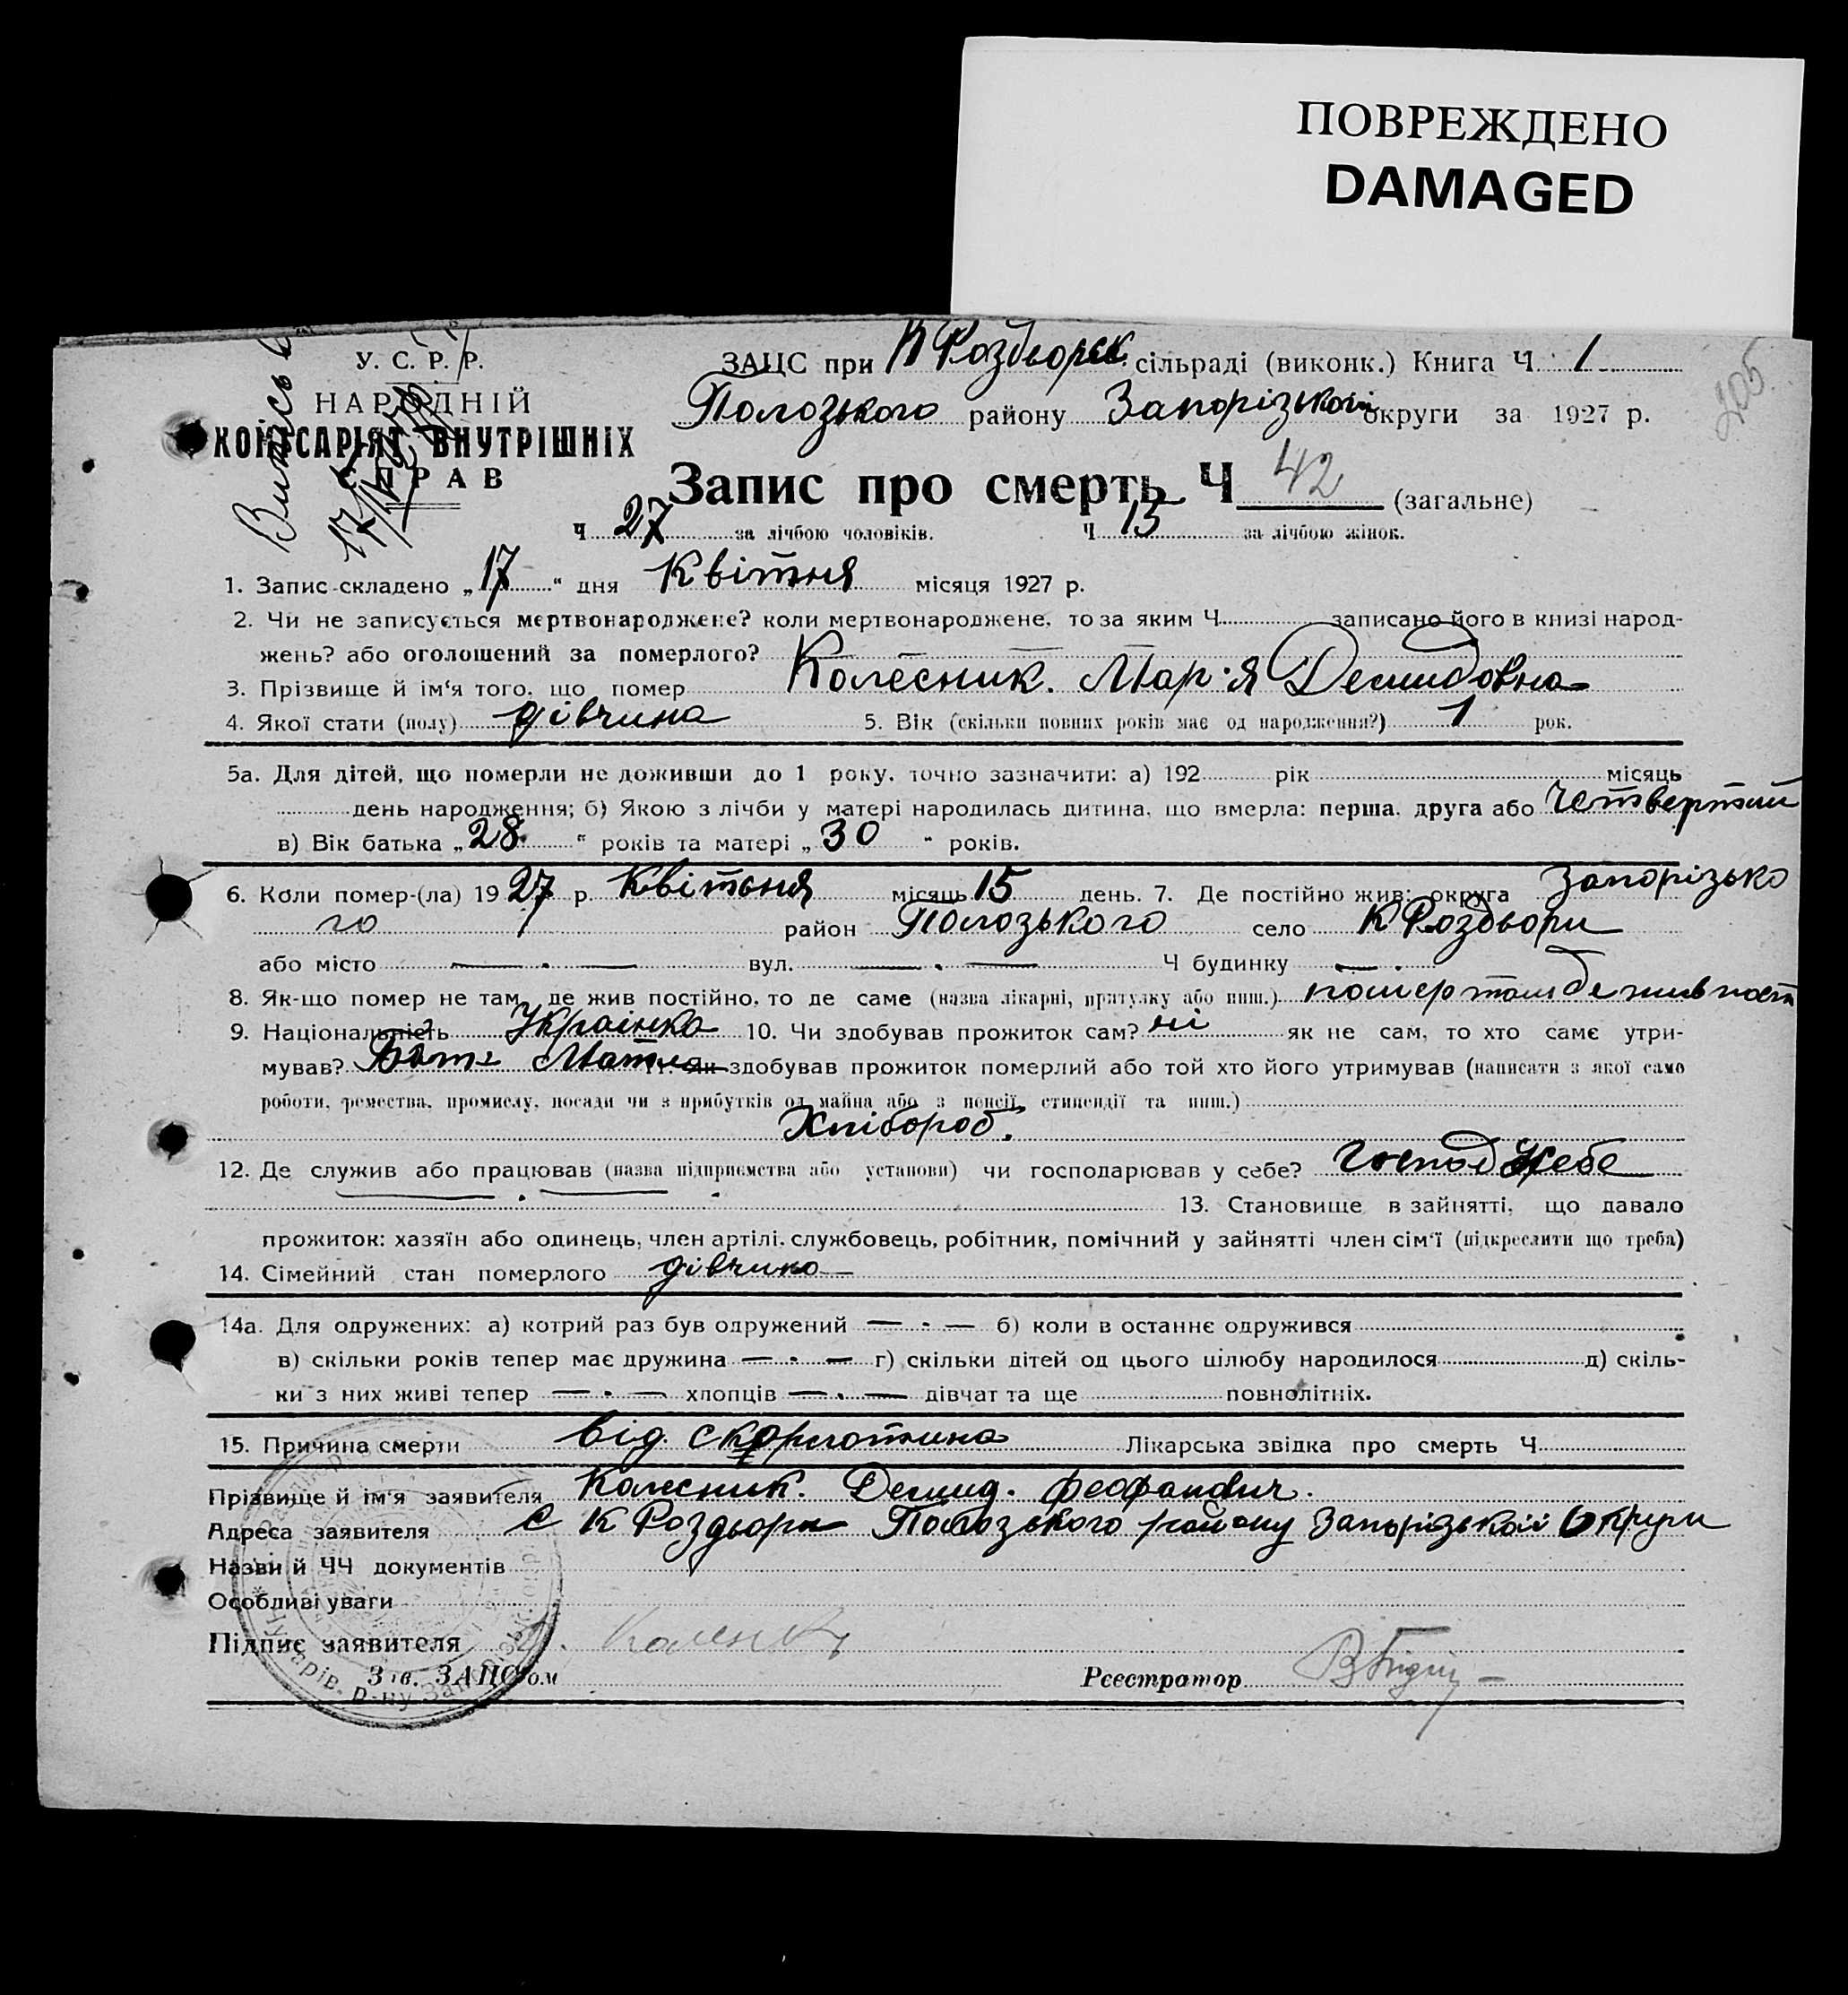 ПОВРЕЖДЕНО
DAMAGED
У. С. Р. Р.
НАРОДНІЙ
КОМІСАРІЯТ ВНУТРІШНІХ
СПРАВ
Випись
205
ЗАЦС при К Роздьорск. сільраді (виконк.) Книга Ч 1
Полозького району Запорізької округи за 1927 р.
Запис про смерть Ч 42 (загальне)
Ч 27 за лічбою чоловіків. Ч 15 за лічбою жінок.
1. Запис складено „17“ дня Квітня місяця 1927 р.
2. Чи не записується мертвонароджене? коли мертвонароджене, то за яким Ч записано його в книзі народ-
жень? або оголошений за померлого?
3. Прізвище й ім‘я того, що помер Колесник. Мар·я Демидовна
4. Якої стати (полу) дівчина 5. Вік (скільки повних років має од народження?) 1 рок.
5а. Для дітей, що померли не доживши до 1 року, точно зазначити: а) 192 рік місяць
день народження; б) Якою з лічби у матері народилась дитина, що вмерла: перша, друга або четвертий
в) Вік батька „28“ років та матері „30“ років.
6. Коли помер-(ла) 1927 р. Квітьня місяць 15 день. 7. Де постійно жив: округа Запорізько
го район Полозького село К Роздьори
або місто — . — вул. — . — Ч будинку — .
8. Як-що помер не там, де жив постійно, то де саме (назва лікарні, притулку або инш.) помер там де жив
9. Національність Українка 10. Чи здобував прожиток сам? ні як не сам, то хто саме утри-
мував? Мати 11. Як здобував прожиток померлий або той хто його утримував (написати з якої само
роботи, ремества, промислу, посади чи з прибутків од майна або з пенсії, стипендії та инш.)
Хлібороб.
12. Де служив або працював (назва підприємства або установи) чи господарював у себе? Господ Усебе
13. Становище в зайнятті, що давало
прожиток: хазяїн або одинець, член артілі, службовець, робітник, помічний у зайнятті член сім‘ї (підкреслити що треба)
14. Сімейний стан померлого дівчина
14а. Для одружених: а) котрий раз був одружений — . — б) коли в останнє одружився
в) скільки років тепер має дружина — . — г) скільки дітей од цього шлюбу народилося д) скіль-
ки з них живі тепер — . — хлопців — . — дівчат та ще повнолітніх.
15. Причина смерти від скорлотина Лікарська звідка про смерть Ч
Прізвище й ім‘я заявителя Колесник. Демид. Феофанович.
Адреса заявителя с К Роздьори Полозького району Запорізькой Округи
Назви й ЧЧ документів
Особливі уваги
Підпис заявителя
Зав. ЗАЦСом Реєстратор